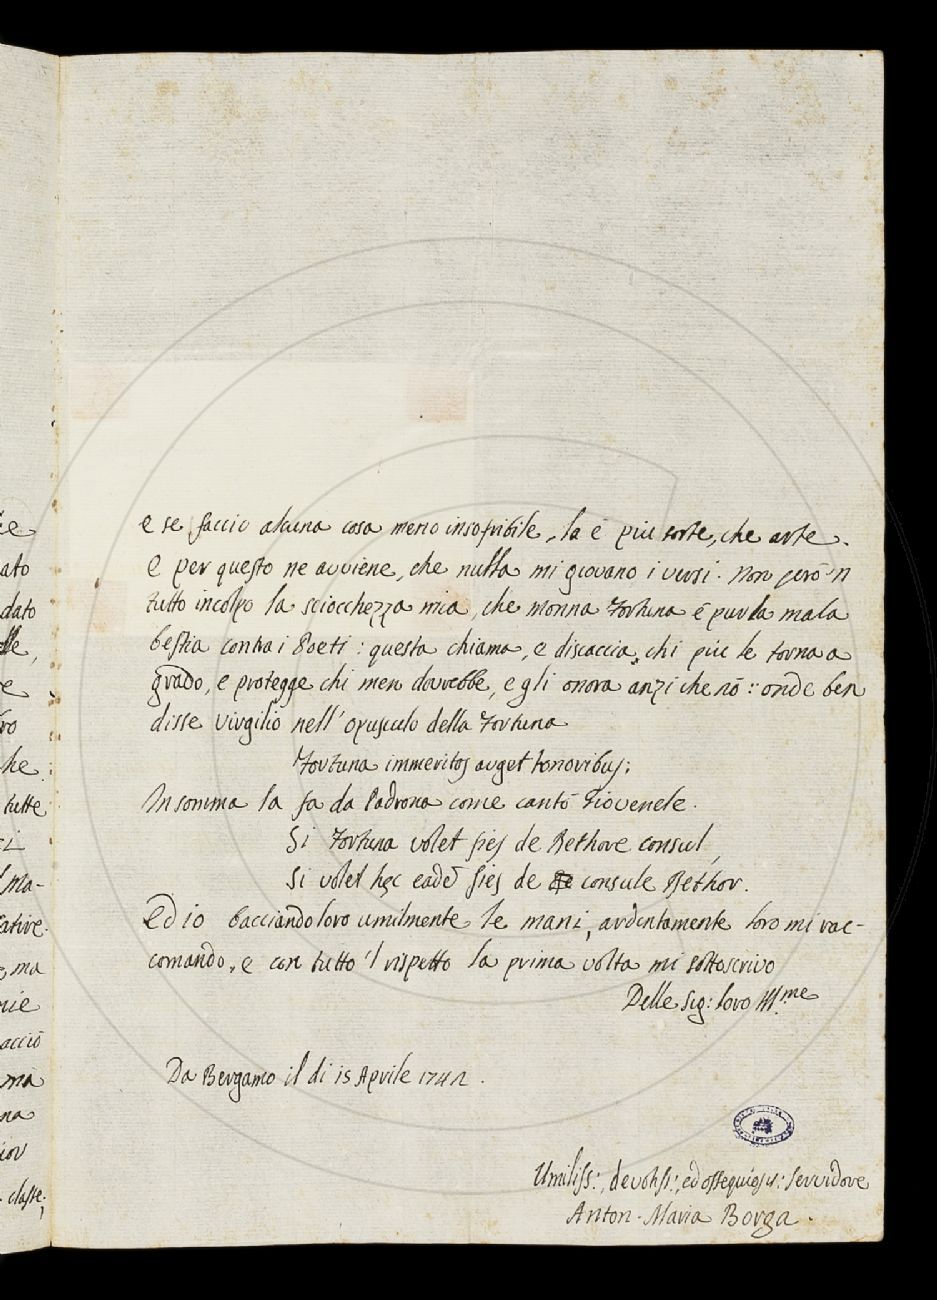 e se faccio alcuna cosa meno insofribile, la è più sorte, che arte.
E per questo ne avviene, che nulla mi giovano i versi. Non però 'n
tutto incolpo la sciocchezza mia, che monna Fortuna è pur la mala
bestia contra i Poeti: questa chiama, e discaccia, chi più le torna a
grado, e protegge chi men dovrebbe, e gli onora anzi che nò: onde ben
disse Virgilio nell'opusculo della Fortuna
Fortuna immeritos auget honoribus;
In somma la fa da Padrona come cantò Giovenale.
Si Fortuna volet fies de Rethore consul,
Si volet hęc eadē fies de consule Rethor.
Ed io bacciando loro umilmente le mani, ardentamente loro mi rac-
comando, e con tutto 'l rispetto la prima volta mi sottoscrivo
Delle Sig: loro Ill.me
Da Bergamo il di 15 Aprile 174
Umiliss:, devotiss:, ed ossequiosis: Servidore
Anton-Maria Borga.
ato
dato
he
tutte
Ma-
ative.
, ma
acciò
ma
na
classe;